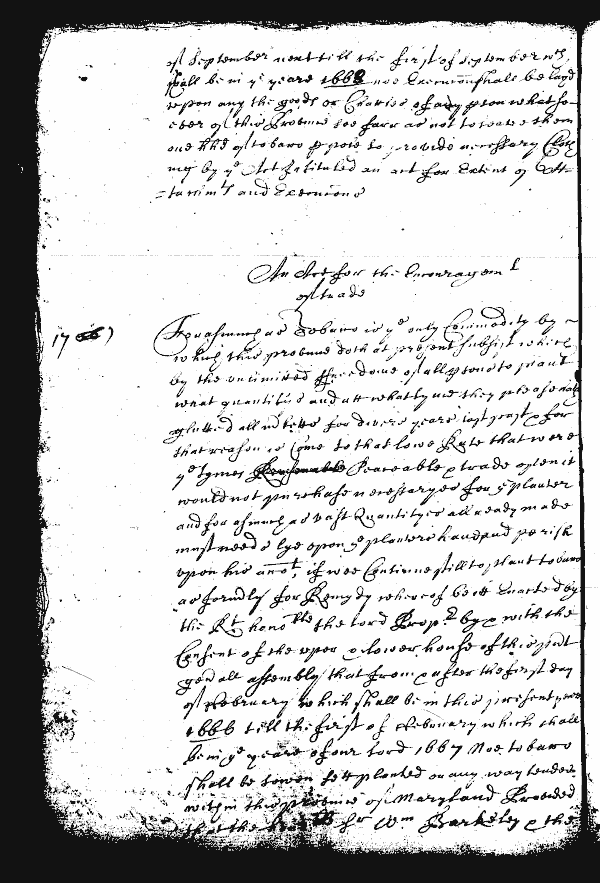 of September next till the first of September wch
shall be in ye yeare 1668 noe Execucon shall be layd
upon any the goods or Chattles of any pson what so
ever of this Province soe farr as not to leave them
one hhd of tobaco to provide necessary Cloth
ing by ye Act Intituled an act for Extent of Att-
=tachmts and Execucons
An Act for the Encouragemt
of trade
17
Forasmuch as Tobaco is ye only Commodity by
which this province doth at present subsist which
by the unlimited freedome of all psons to plant
what quantities and att what tyme they please hath
glutted all mketts for divers yeares last past & for
that reason is Come to that lowe Rate that were
ye tymes Peaceable & trade open it
would not purchase necessaryes for ye planter
and for asmuch as vast Quantityes allready made
must needs lye upon ye planters hand and perish
upon his accot, if wee Continue still to plant tobaco
as formerly for Remedy whereof be itt Enacted by
the Rt honoble the lord Propry by & with the
Consent of the uper & lower house of this psnt
genall assembly that from & after the first day
of February which shall be in this present yeare
1666 till the first of February which shall
be in ye yeare of our lord 1667 Noe tobaco
shall be sowen sett planted or any way tended
within this province of Maryland Provided
that the Sr Wm Barkely & the